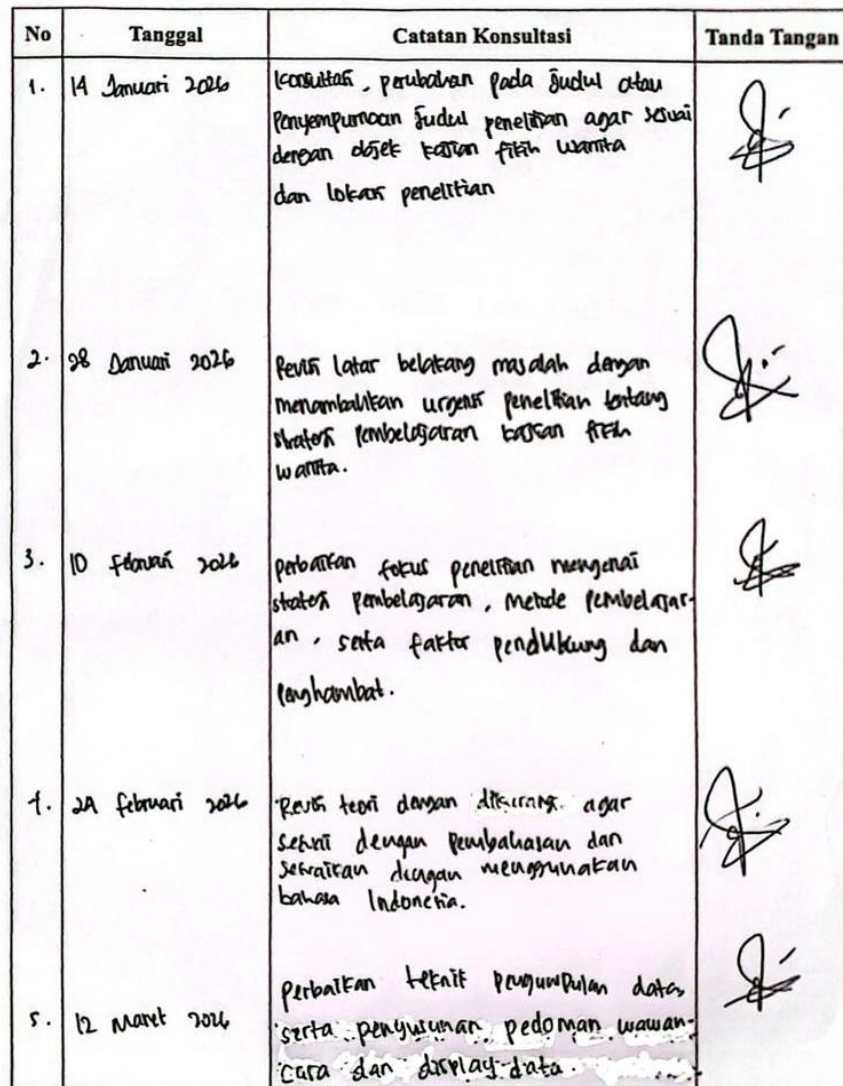 No Tanggal Catatan Konsultasi Tanda Tangan
1. 14 Januari 2026 Konsultasi, perubahan pada judul atau
penyempurnaan judul penelitian agar sesuai
dengan objek kajian fikih wanita
dan lokasi penelitian
2. 28 Januari 2026 Revisi latar belakang masalah dengan
menambahkan urgensi penelitian tentang
strategi pembelajaran kajian fikih
wanita.
3. 10 Februari 2026 perbaikan fokus penelitian mengenai
strategi pembelajaran, metode pembelajar-
an, serta faktor pendukung dan
penghambat.
4. 24 februari 2026 Revisi teori dengan dikurangi agar
sesuai dengan pembahasan dan
sesuaikan dengan menggunakan
bahasa Indonesia.
perbaikan teknik pengumpulan data,
5. 12 Maret 2026 serta penyusunan pedoman wawan-
cara dan display data.